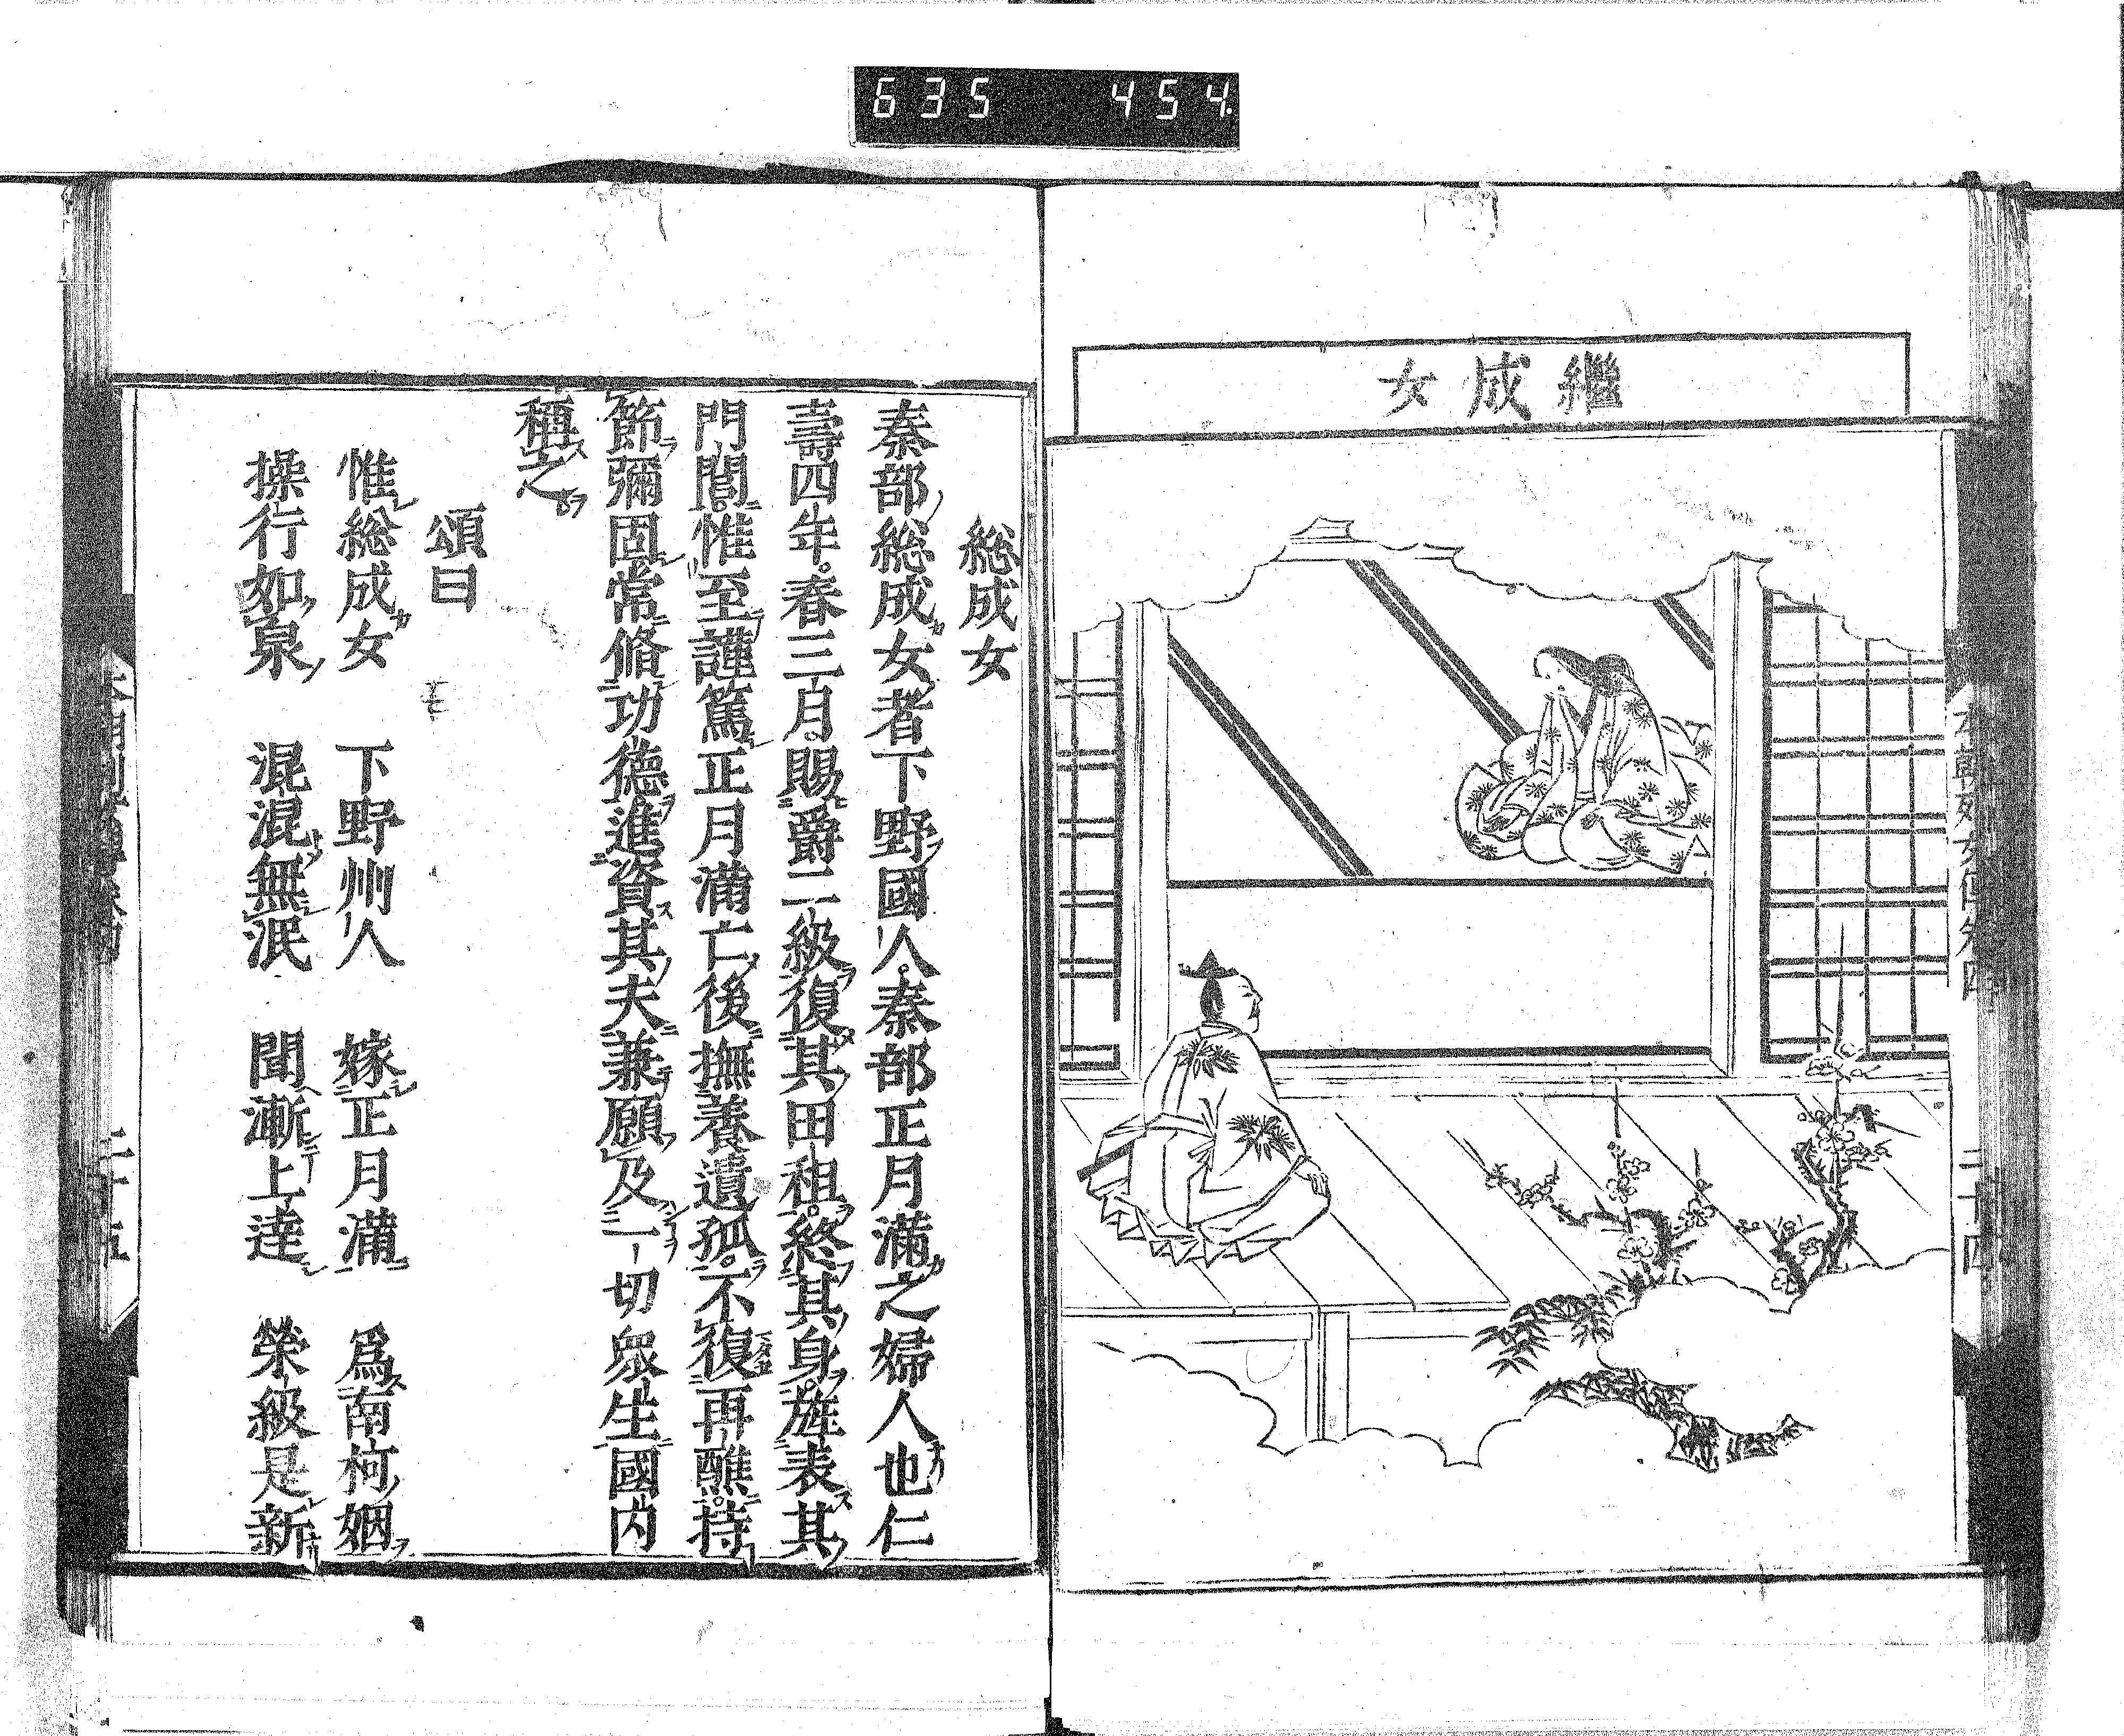 635 454
繼成女
本朝列女傳卷四
二十四
総成女
秦部総成女者下野國人。秦部正月滿之婦人也仁
壽四年。春三月。賜爵二級復其田租。終其身。旌表其
門閭。惟至謹篤正月滿亡後撫養遺孤。不復再醮。持
節彌固常脩功德進資其夫兼願及一切衆生國内
稱之
頌曰
惟総成女　下野州人　嫁正月滿　爲南柯姻
操行如泉　混混無泯　聞漸上達　榮級是新
二十五